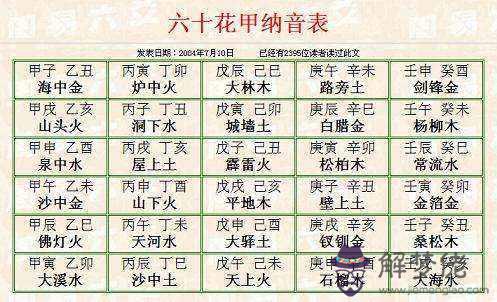 六十花甲纳音表
发表日期：2004年7月10日 已经有2395位读者读过此文
甲子 乙丑 丙寅 丁卯 戊辰 己巳 庚午 辛未 壬申 癸酉
海中金 炉中火 大林木 路旁土 剑锋金
甲戌 乙亥 丙子 丁丑 戊寅 己卯 庚辰 辛巳 壬午 癸未
山头火 涧下水 城墙土 白腊金 杨柳木
甲申 乙酉 丙戌 丁亥 戊子 己丑 庚寅 辛卯 壬辰 癸巳
泉中水 屋上土 霹雷火 松柏木 常流水
甲午 乙未 丙申 丁酉 戊戌 己亥 庚子 辛丑 壬寅 癸卯
沙中金 山下火 平地木 壁上土 金箔金
甲辰 乙巳 丙午 丁未 戊申 己酉 庚戌 辛亥 壬子 癸丑
佛灯火 天河水 大驿土 钗钏金 桑松木
甲寅 乙卯 丙辰 丁巳 戊午 己未 酉
大溪水 沙中土 天上火 石榴木 大海水
解梦佬